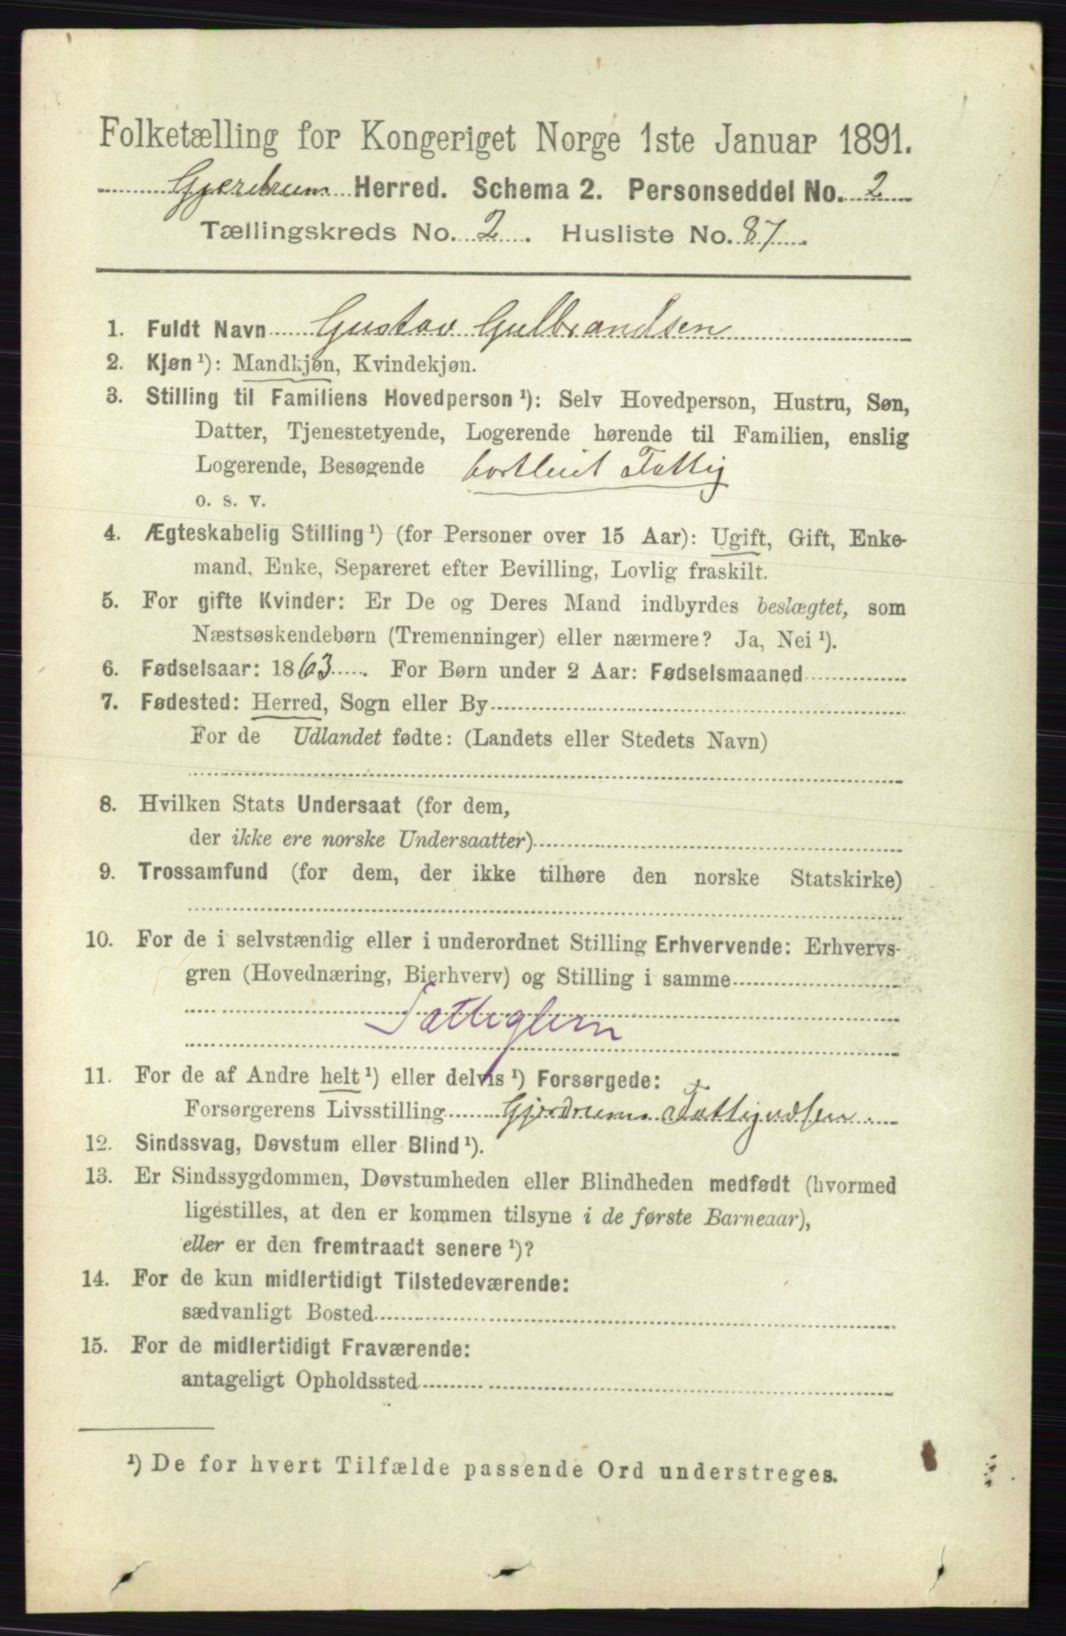 Folketælling for Kongeriget Norge 1ste Januar 1891.
Gjerdrum Herred. Schema 2. Personseddel No. 2
Tællingskreds No. 2. Husliste No. 87.
1. Fuldt Navn Gustav Gulbrandsen
2. Kjøn ¹): Mandkjøn, Kvindekjøn.
3. Stilling til Familiens Hovedperson ¹): Selv Hovedperson, Hustru, Søn,
Datter, Tjenestetyende, Logerende hørende til Familien, enslig
Logerende, Besøgende bortleiet Fattig
o. s. v.
4. Ægteskabelig Stilling ¹) (for Personer over 15 Aar): Ugift, Gift, Enke-
mand, Enke, Separeret efter Bevilling, Lovlig fraskilt.
5. For gifte Kvinder: Er De og Deres Mand indbyrdes beslægtet, som
Næstsøskendebørn (Tremenninger) eller nærmere? Ja, Nei ¹).
6. Fødselsaar: 1863. For Børn under 2 Aar: Fødselsmaaned
7. Fødested: Herred, Sogn eller By
For de Udlandet fødte: (Landets eller Stedets Navn)
8. Hvilken Stats Undersaat (for dem,
der ikke ere norske Undersaatter)
9. Trossamfund (for dem, der ikke tilhøre den norske Statskirke)
10. For de i selvstændig eller i underordnet Stilling Erhvervende: Erhvervs-
gren (Hovednæring, Bierhverv) og Stilling i samme
Fattiglem
11. For de af Andre helt ¹) eller delvis ¹) Forsørgede:
Forsørgerens Livsstilling Gjerdrums Fattigvæsen.
12. Sindssvag, Døvstum eller Blind ¹).
13. Er Sindssygdommen, Døvstumheden eller Blindheden medfødt (hvormed
ligestilles, at den er kommen tilsyne i de første Barneaar),
eller er den fremtraadt senere ¹)?
14. For de kun midlertidigt Tilstedeværende:
sædvanligt Bosted
15. For de midlertidigt Fraværende:
antageligt Opholdssted
¹) De for hvert Tilfælde passende Ord understreges.